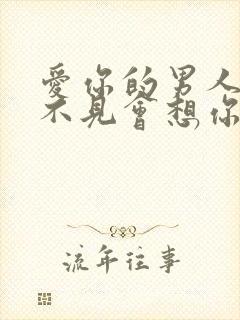 爱你的男人
不見會想你
流年往事